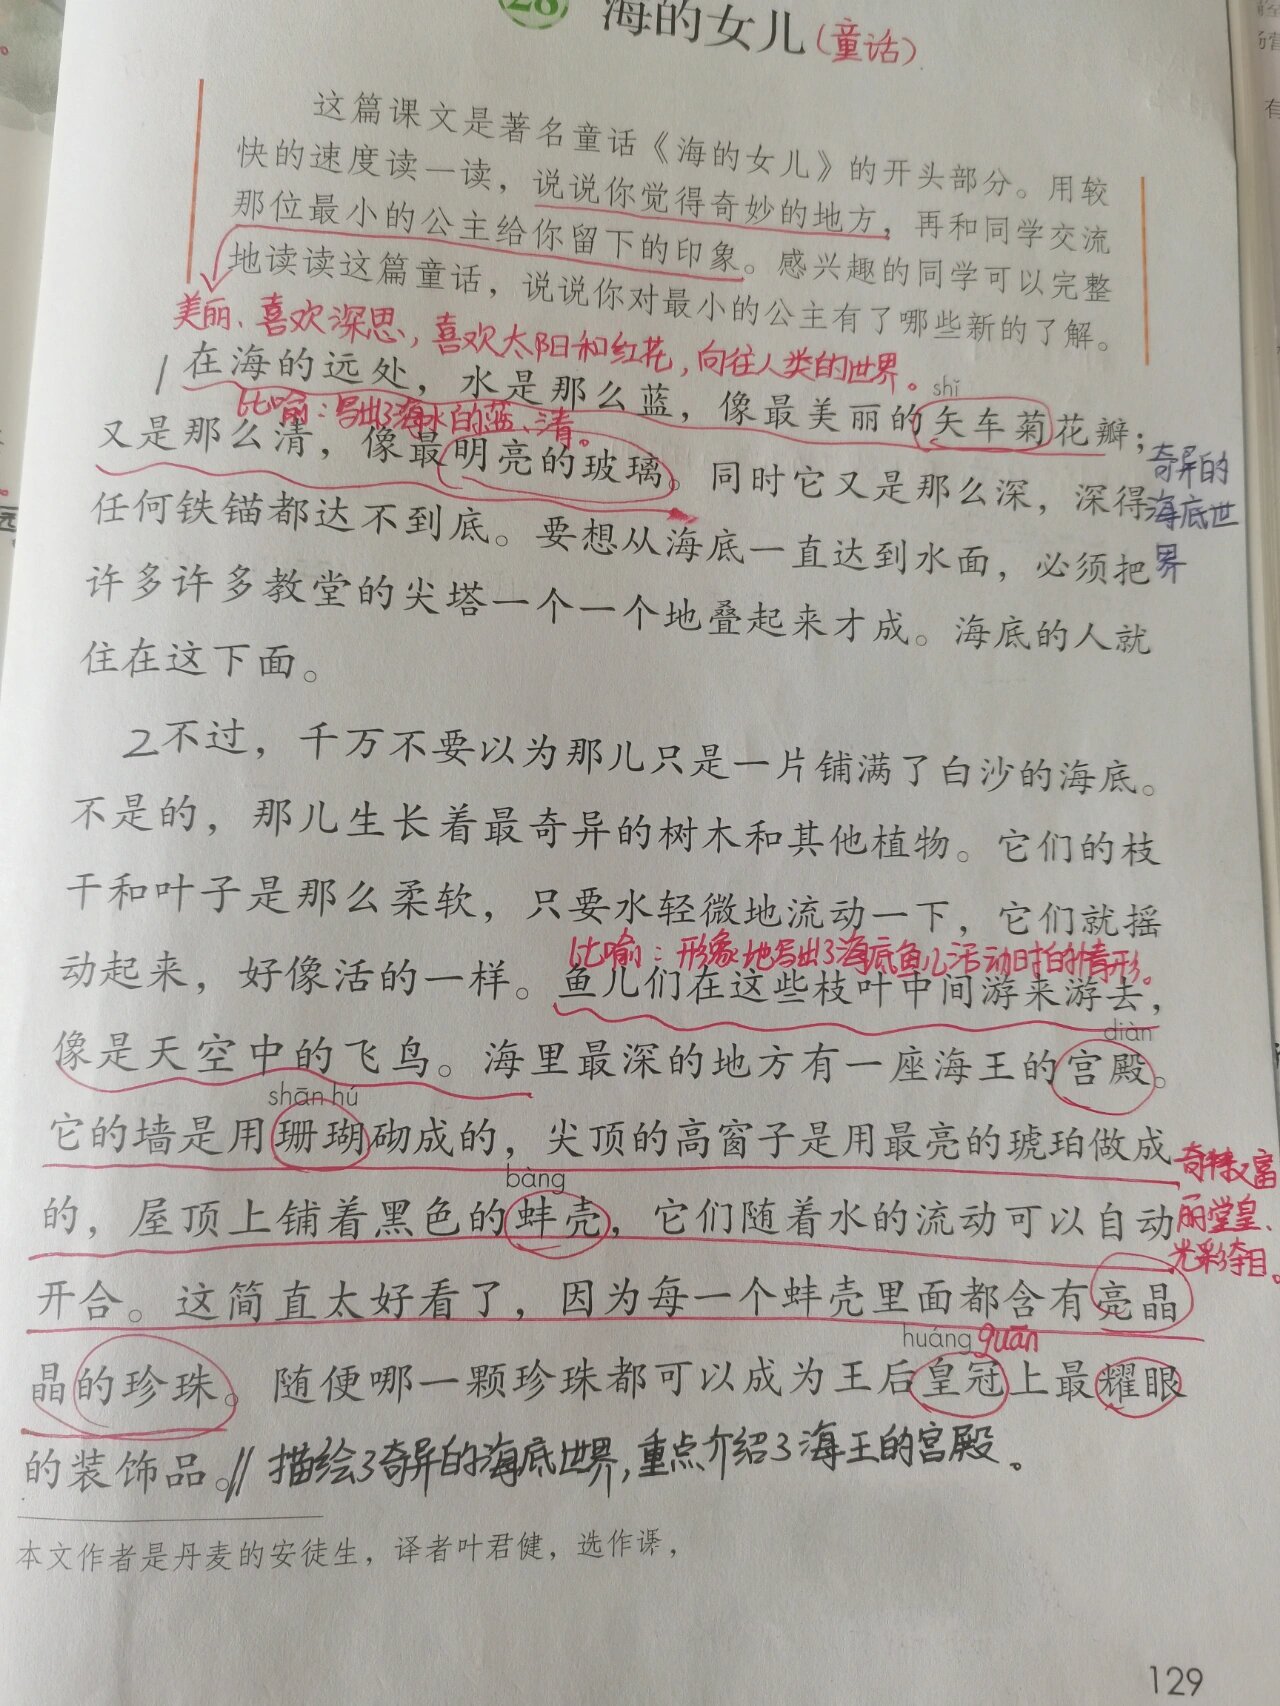 28 海的女儿（童话）
这篇课文是著名童话《海的女儿》的开头部分。用较
快的速度读一读，说说你觉得奇妙的地方，再和同学交流
那位最小的公主给你留下的印象。感兴趣的同学可以完整
地读读这篇童话，说说你对最小的公主有了哪些新的了解。
美丽、喜欢深思，喜欢太阳和红花，向往人类的世界。
shǐ
1在海的远处，水是那么蓝，像最美丽的矢车菊花瓣；
比喻：写出了海水的蓝、清。
又是那么清，像最明亮的玻璃。同时它又是那么深，深得
奇异的
海底世
界
任何铁锚都达不到底。要想从海底一直达到水面，必须把
许多许多教堂的尖塔一个一个地叠起来才成。海底的人就
住在这下面。
2不过，千万不要以为那儿只是一片铺满了白沙的海底。
不是的，那儿生长着最奇异的树木和其他植物。它们的枝
干和叶子是那么柔软，只要水轻微地流动一下，它们就摇
比喻：形象地写出了海底鱼儿活动时的情形。
动起来，好像活的一样。鱼儿们在这些枝叶中间游来游去，
diàn
像是天空中的飞鸟。海里最深的地方有一座海王的宫殿。
shān hú
它的墙是用珊瑚砌成的，尖顶的高窗子是用最亮的琥珀做成
bàng
的，屋顶上铺着黑色的蚌壳，它们随着水的流动可以自动
奇特又富
丽堂皇、
光彩夺目。
开合。这简直太好看了，因为每一个蚌壳里面都含有亮晶
huáng guān
晶的珍珠。随便哪一颗珍珠都可以成为王后皇冠上最耀眼
的装饰品。// 描绘了奇异的海底世界，重点介绍了海王的宫殿。
本文作者是丹麦的安徒生，译者叶君健，选作课，
129